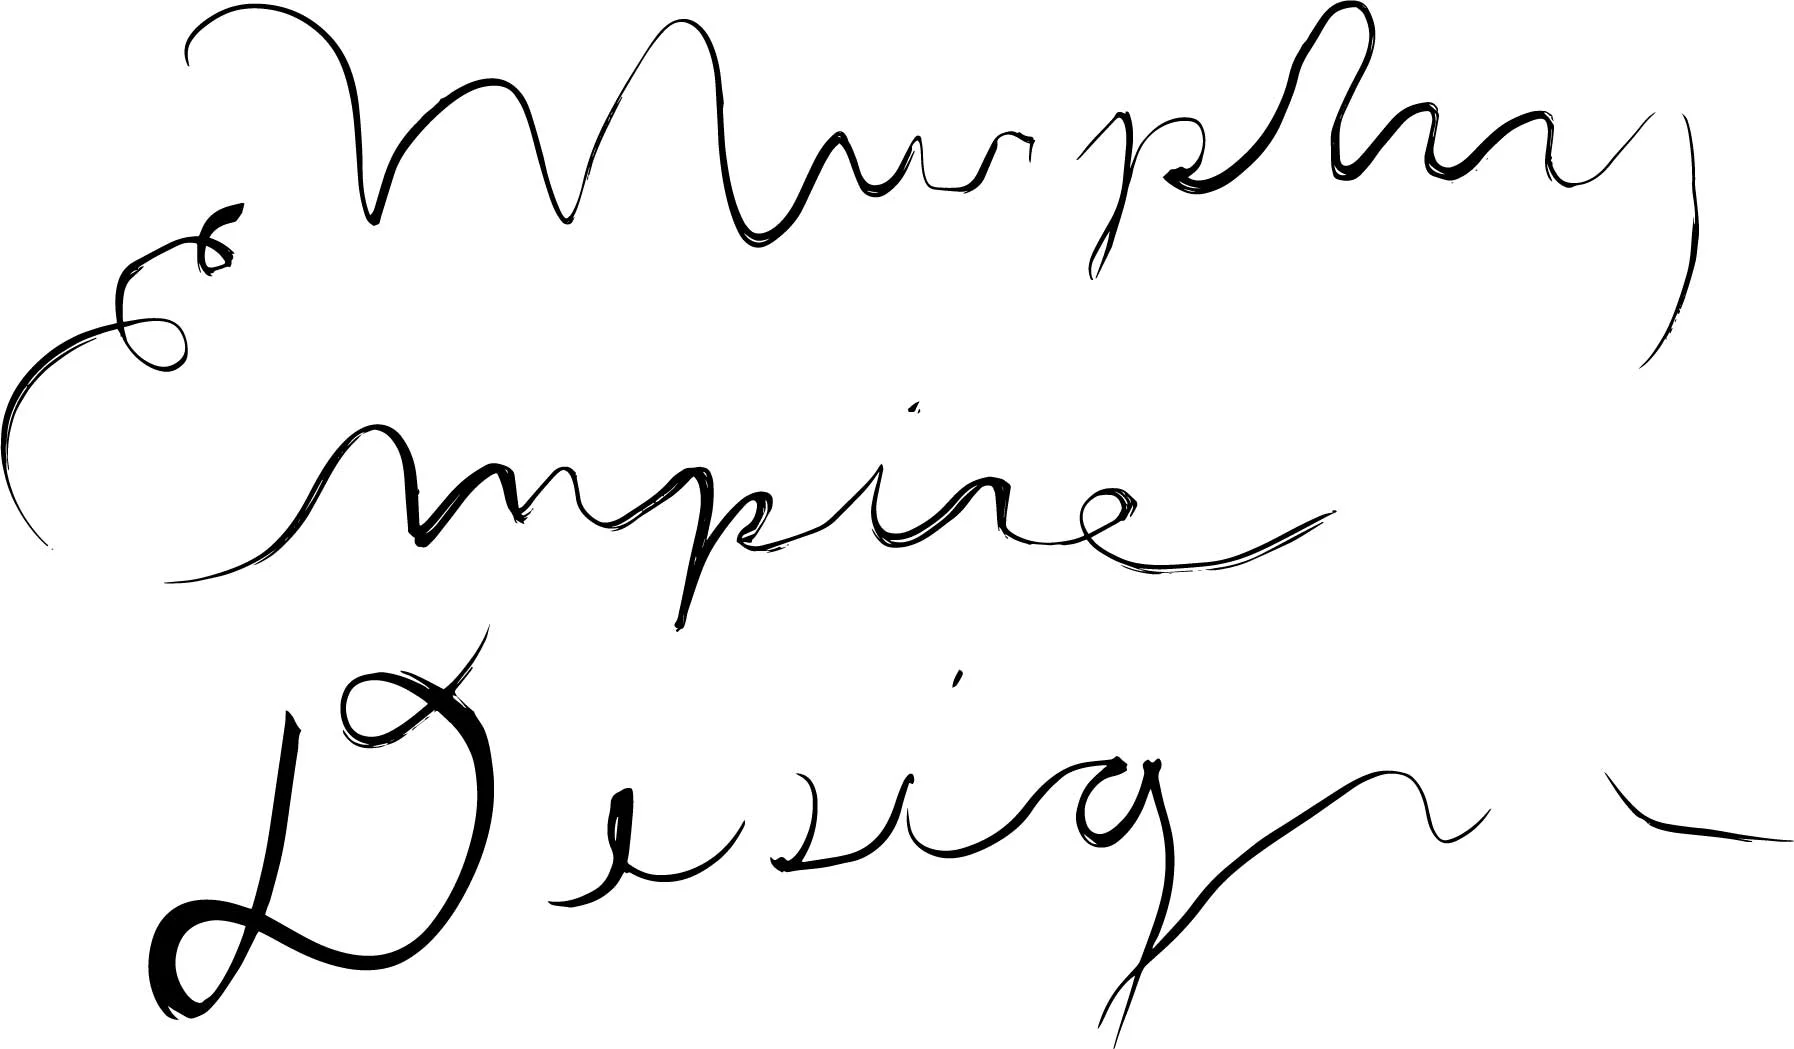 Murphy
Empire
Design